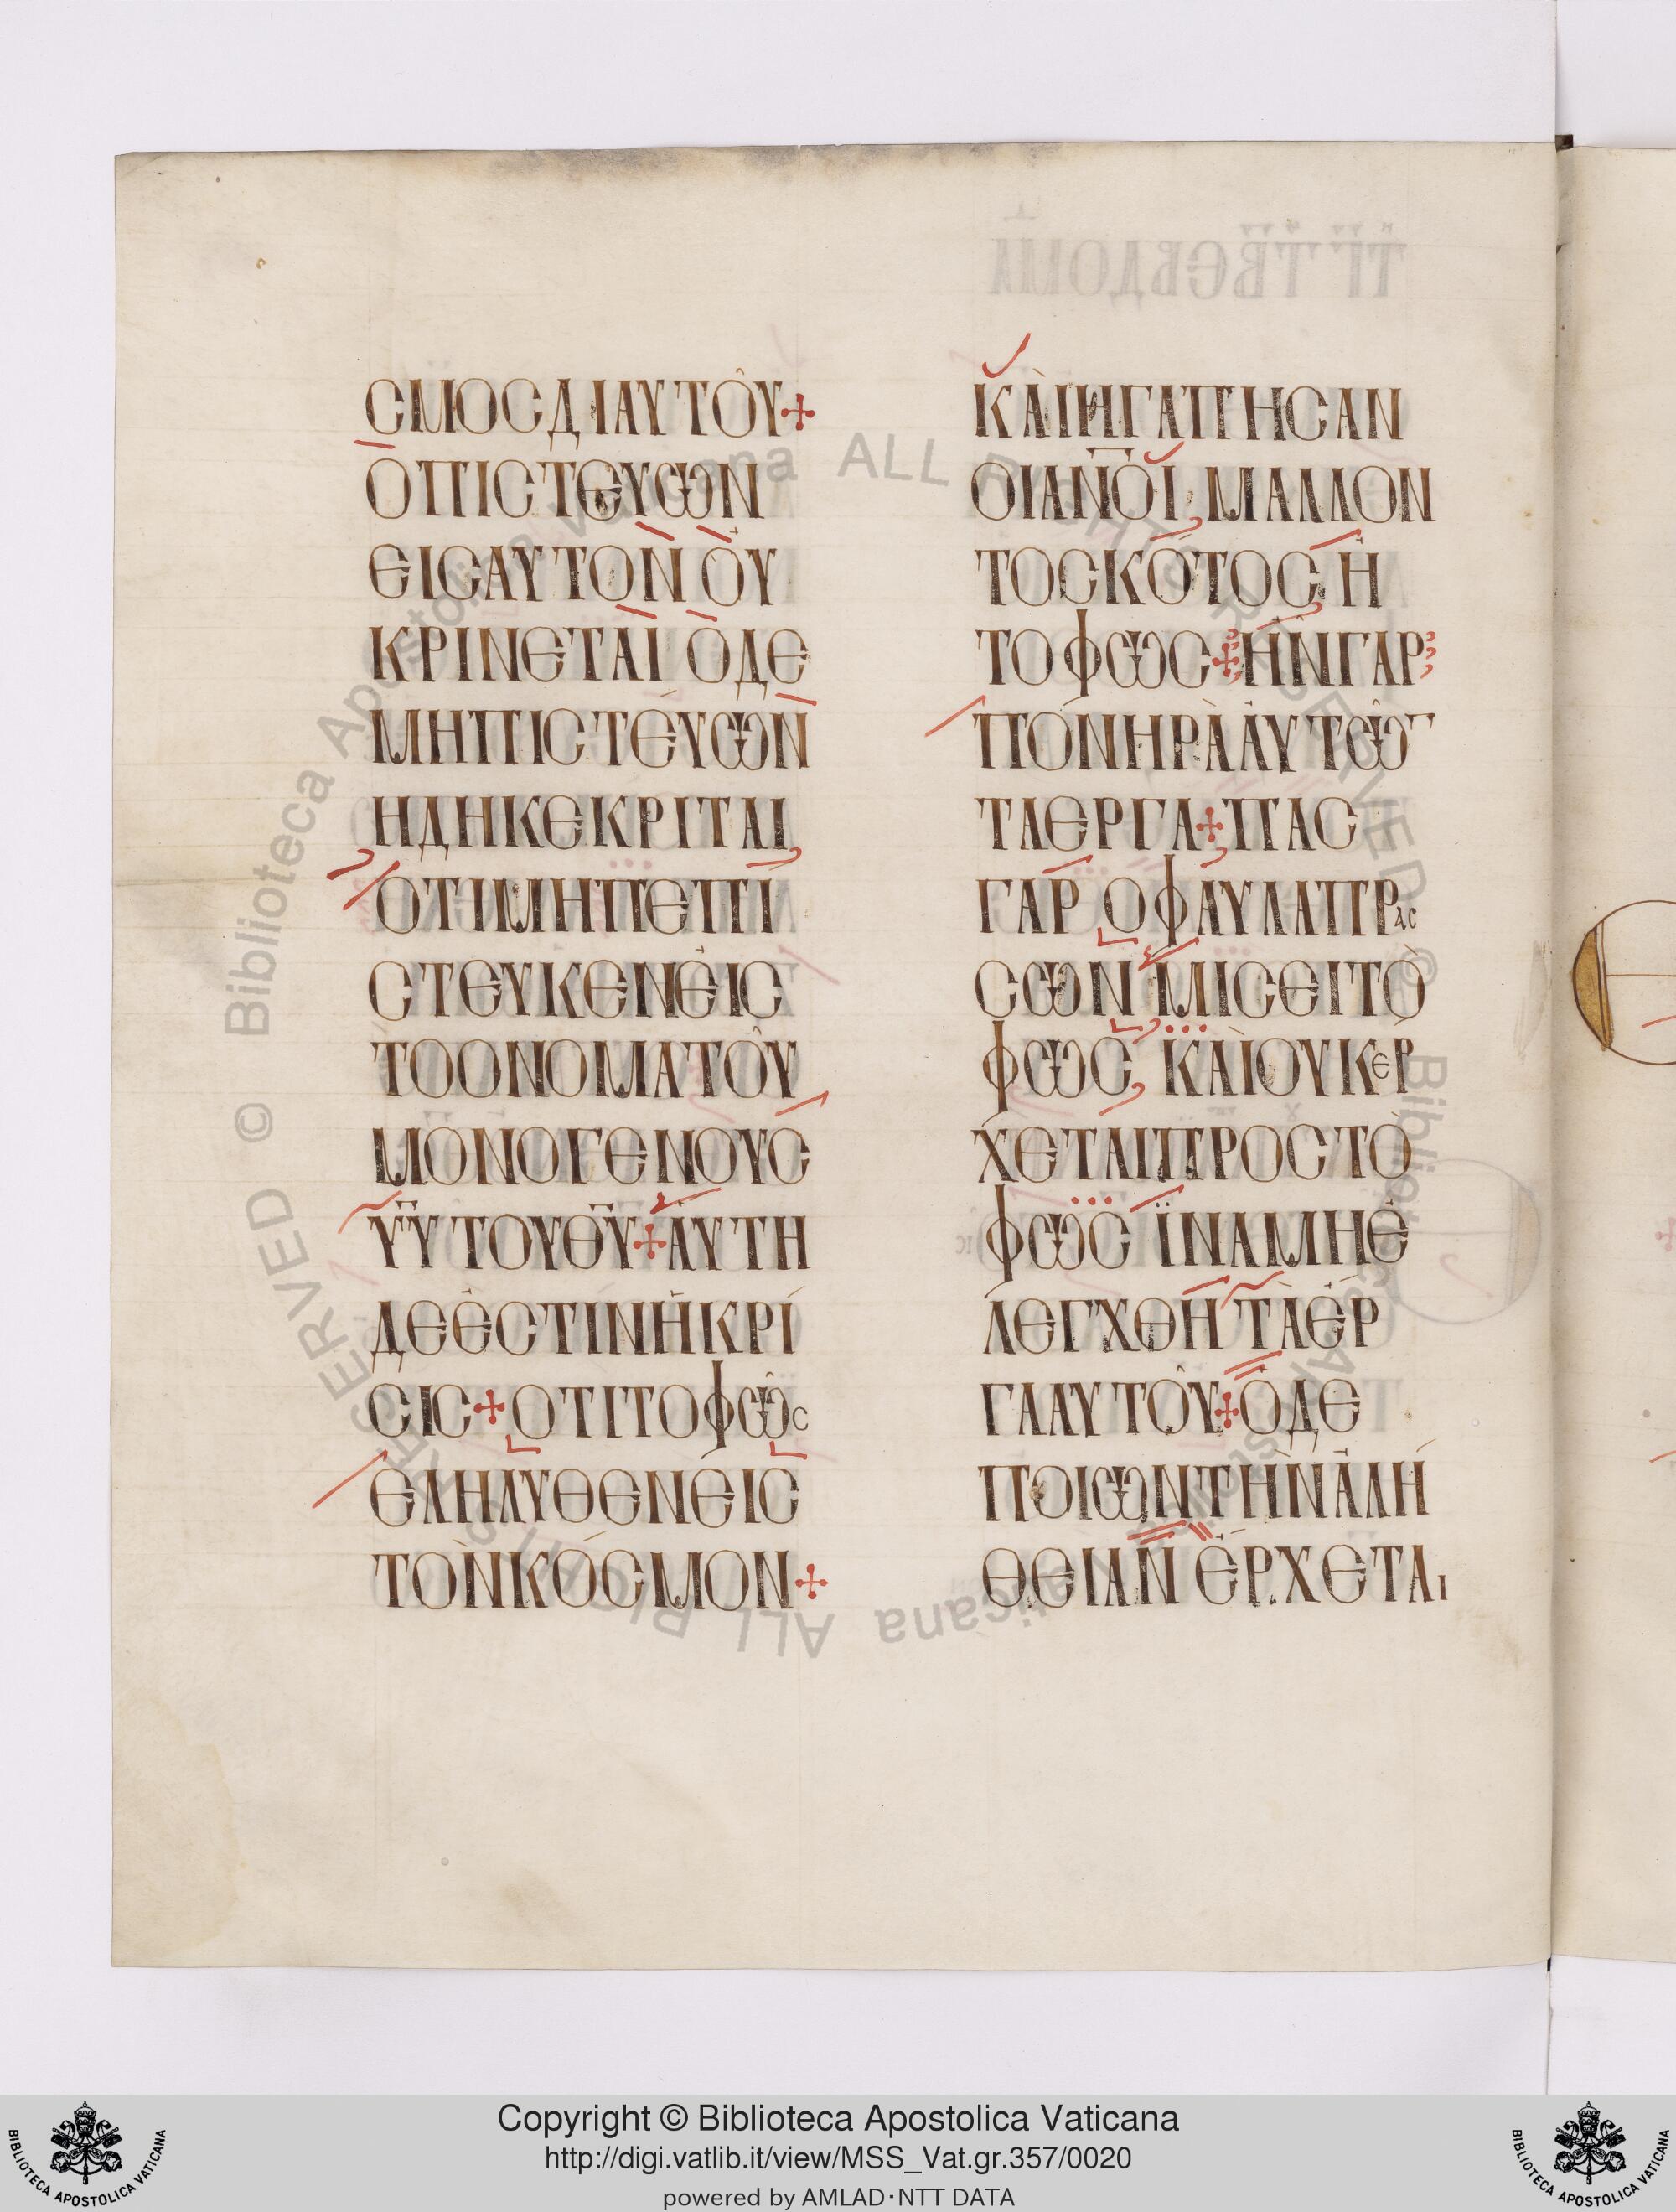 СΜΟСΔΙΑΥΤΟῦ+
ΟΠΙСΤΕΥωΝ
ΕΙСΑΥΤΟΝ ΟΥ
ΚΡΙΝΕΤΑΙ ΟΔΕ
ΜΗΠΙСΤΕΥωΝ
ΗΔΗΚΕΚΡΙΤΑΙ
ΟΤΙΜΗΠΕΠΙ
СΤΕΥΚΕΝΕΙС
ΤΟΟΝΟΜΑΤΟΥ
ΜΟΝΟΓΕΝΟΥС
ΥΥ ΤΟΥΘΥ+ΑΥΤΗ
ΔΕΕСΤΙΝΗΚΡΙ
СΙС+ΟΤΙΤΟΦωС
ΕΛΗΛΥΘΕΝΕΙС
ΤΟΝΚΟСΜΟΝ+
ΚΑΙΗΓΑΠΗСΑΝ
ΟΙΑΝΟΙ ΜΑΛΛΟΝ
ΤΟСΚΟΤΟС Η
ΤΟΦωС+ΗΝΓΑΡ
ΠΟΝΗΡΑΑΥΤω
ΤΑΕΡΓΑ+ΠΑС
ΓΑΡ ΟΦΑΥΛΑΠΡΑС
СωΝ ΜΙСΕΙΤΟ
ΦωС ΚΑΙΟΥΚΕΡ
ΧΕΤΑΙΠΡΟСΤΟ
ΦωС ΪΝΑΜΗΕ
ΛΕΓΧΘΗ ΤΑΕΡ
ΓΑΑΥΤΟΥ+ΟΔΕ
ΠΟΙωΝΤΗΝΑΛΗ
ΘΕΙΑΝ ΕΡΧΕΤΑΙ
Copyright © Biblioteca Apostolica Vaticana
http://digi.vatlib.it/view/MSS_Vat.gr.357/0020
powered by AMLAD·NTT DATA
BIBLIOTECA APOSTOLICA VATICANA
BIBLIOTECA APOSTOLICA VATICANA